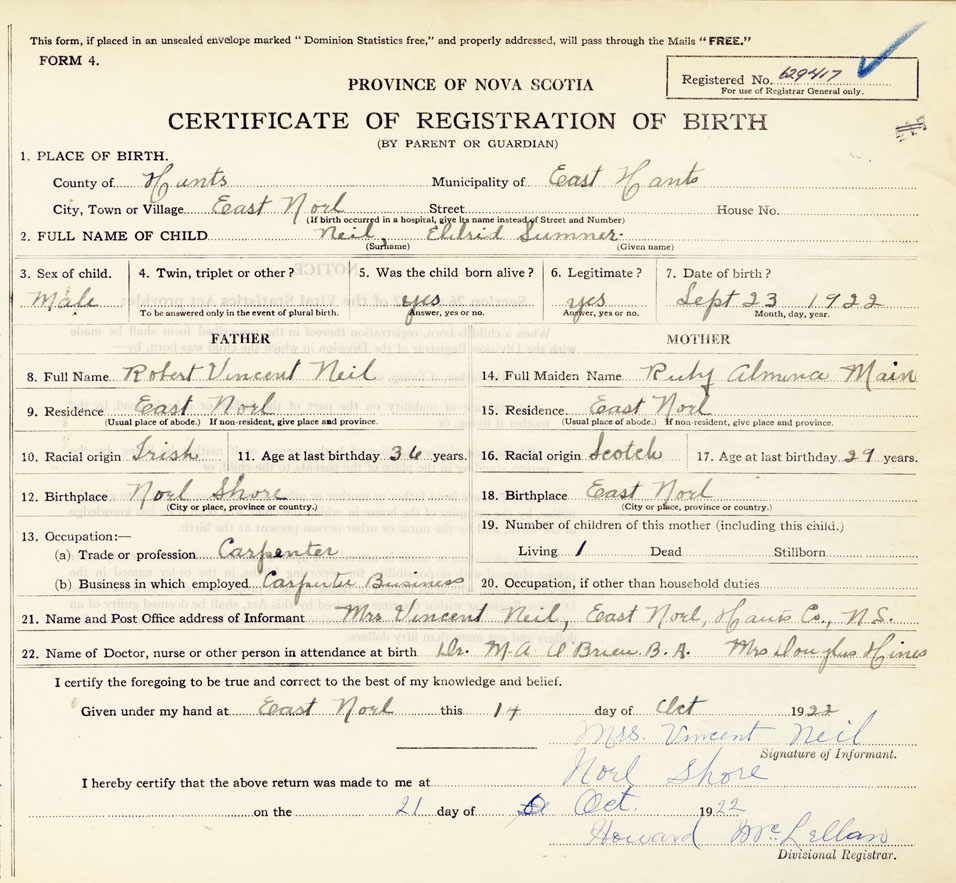 This form, if placed in an unsealed envelope marked " Dominion Statistics free," and properly addressed, will pass through the Mails " FREE."
FORM 4.
Registered No. 629417
For use of Registrar General only.
PROVINCE OF NOVA SCOTIA
CERTIFICATE OF REGISTRATION OF BIRTH
(BY PARENT OR GUARDIAN)
1. PLACE OF BIRTH.
County of Hants Municipality of East Hants
City, Town or Village East Noel Street House No.
(If birth occurred in a hospital, give its name instead of Street and Number)
2. FULL NAME OF CHILD Neil, Eldrid Sumner
(Surname) (Given name)
3. Sex of child. 4. Twin, triplet or other? 5. Was the child born alive? 6. Legitimate? 7. Date of birth?
Male yes yes Sept 23 1922
To be answered only in the event of plural birth. Answer, yes or no. Answer, yes or no. Month, day, year.
FATHER MOTHER
8. Full Name Robert Vincent Neil 14. Full Maiden Name Ruby Almena Main
9. Residence East Noel 15. Residence East Noel
(Usual place of abode.) If non-resident, give place and province. (Usual place of abode.) If non-resident, give place and province.
10. Racial origin Irish 11. Age at last birthday 36 years. 16. Racial origin Scotch 17. Age at last birthday 29 years.
12. Birthplace Noel Shore 18. Birthplace East Noel
(City or place, province or country.) (City or place, province or country.)
13. Occupation:— 19. Number of children of this mother (including this child.)
(a) Trade or profession Carpenter Living 1 Dead Stillborn
(b) Business in which employed Carpenter Business 20. Occupation, if other than household duties
21. Name and Post Office address of Informant Mrs Vincent Neil, East Noel, Hants Co., N.S.
22. Name of Doctor, nurse or other person in attendance at birth Dr. M. A. O'Brien. B. A. Mrs Douglas Hines
I certify the foregoing to be true and correct to the best of my knowledge and belief.
Given under my hand at East Noel this 14 day of Oct 1922
Mrs. Vincent Neil
Signature of Informant.
I hereby certify that the above return was made to me at Noel Shore
on the 21 day of Oct. 1922
Howard McLellan
Divisional Registrar.